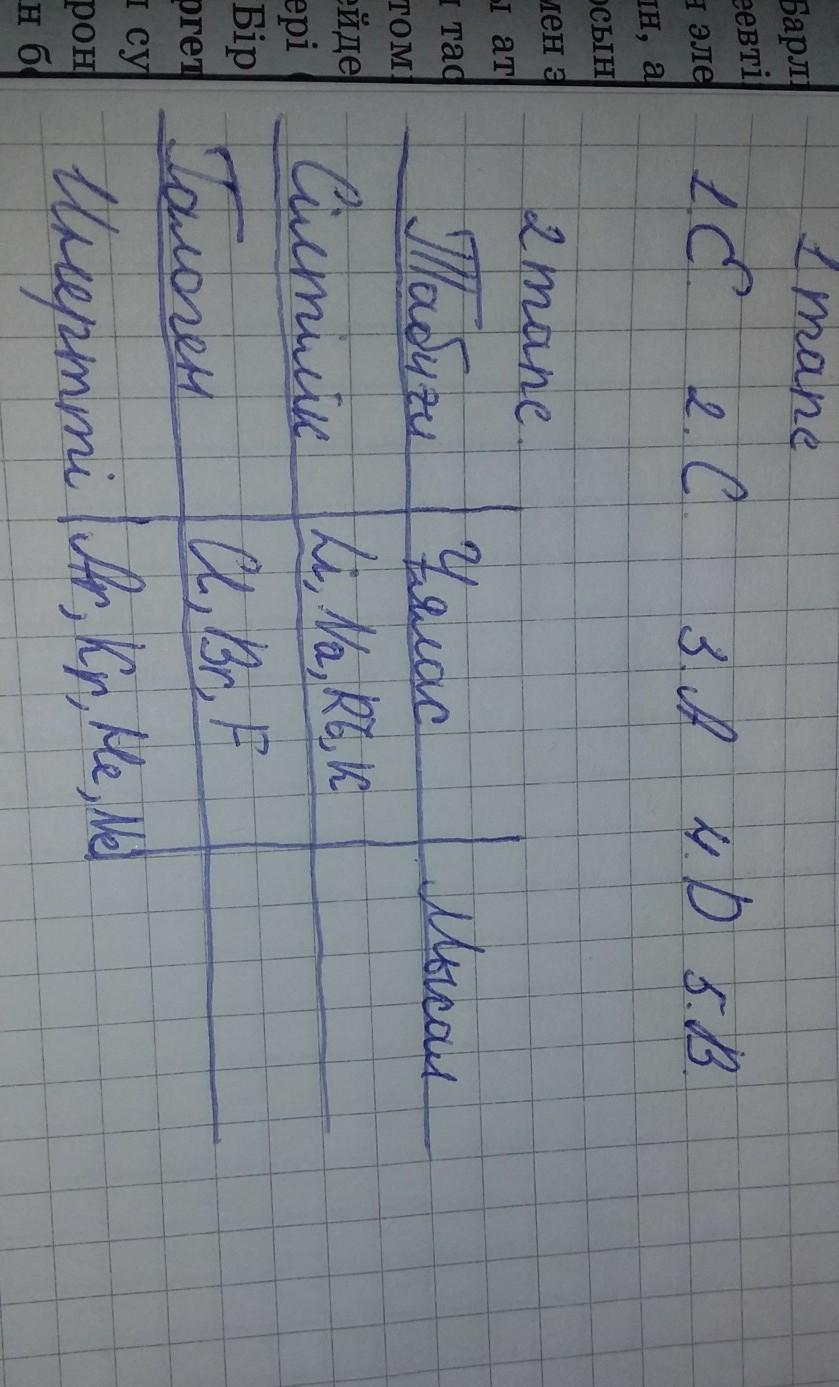 Барл
еевті
н эле
н, а
осын
мен э
ы ат
тас
том
ейде
ері
Бір
ргет
су
рон
н б
1 тапс
1. С 2. С 3. А 4. D 5. В
2 тапс.
Табиғи Ұялас Мысал
Сілтілік Li, Na, Rb, K
Галоген Cl, Br, F
Инертті Ar, Kr, He, Ne